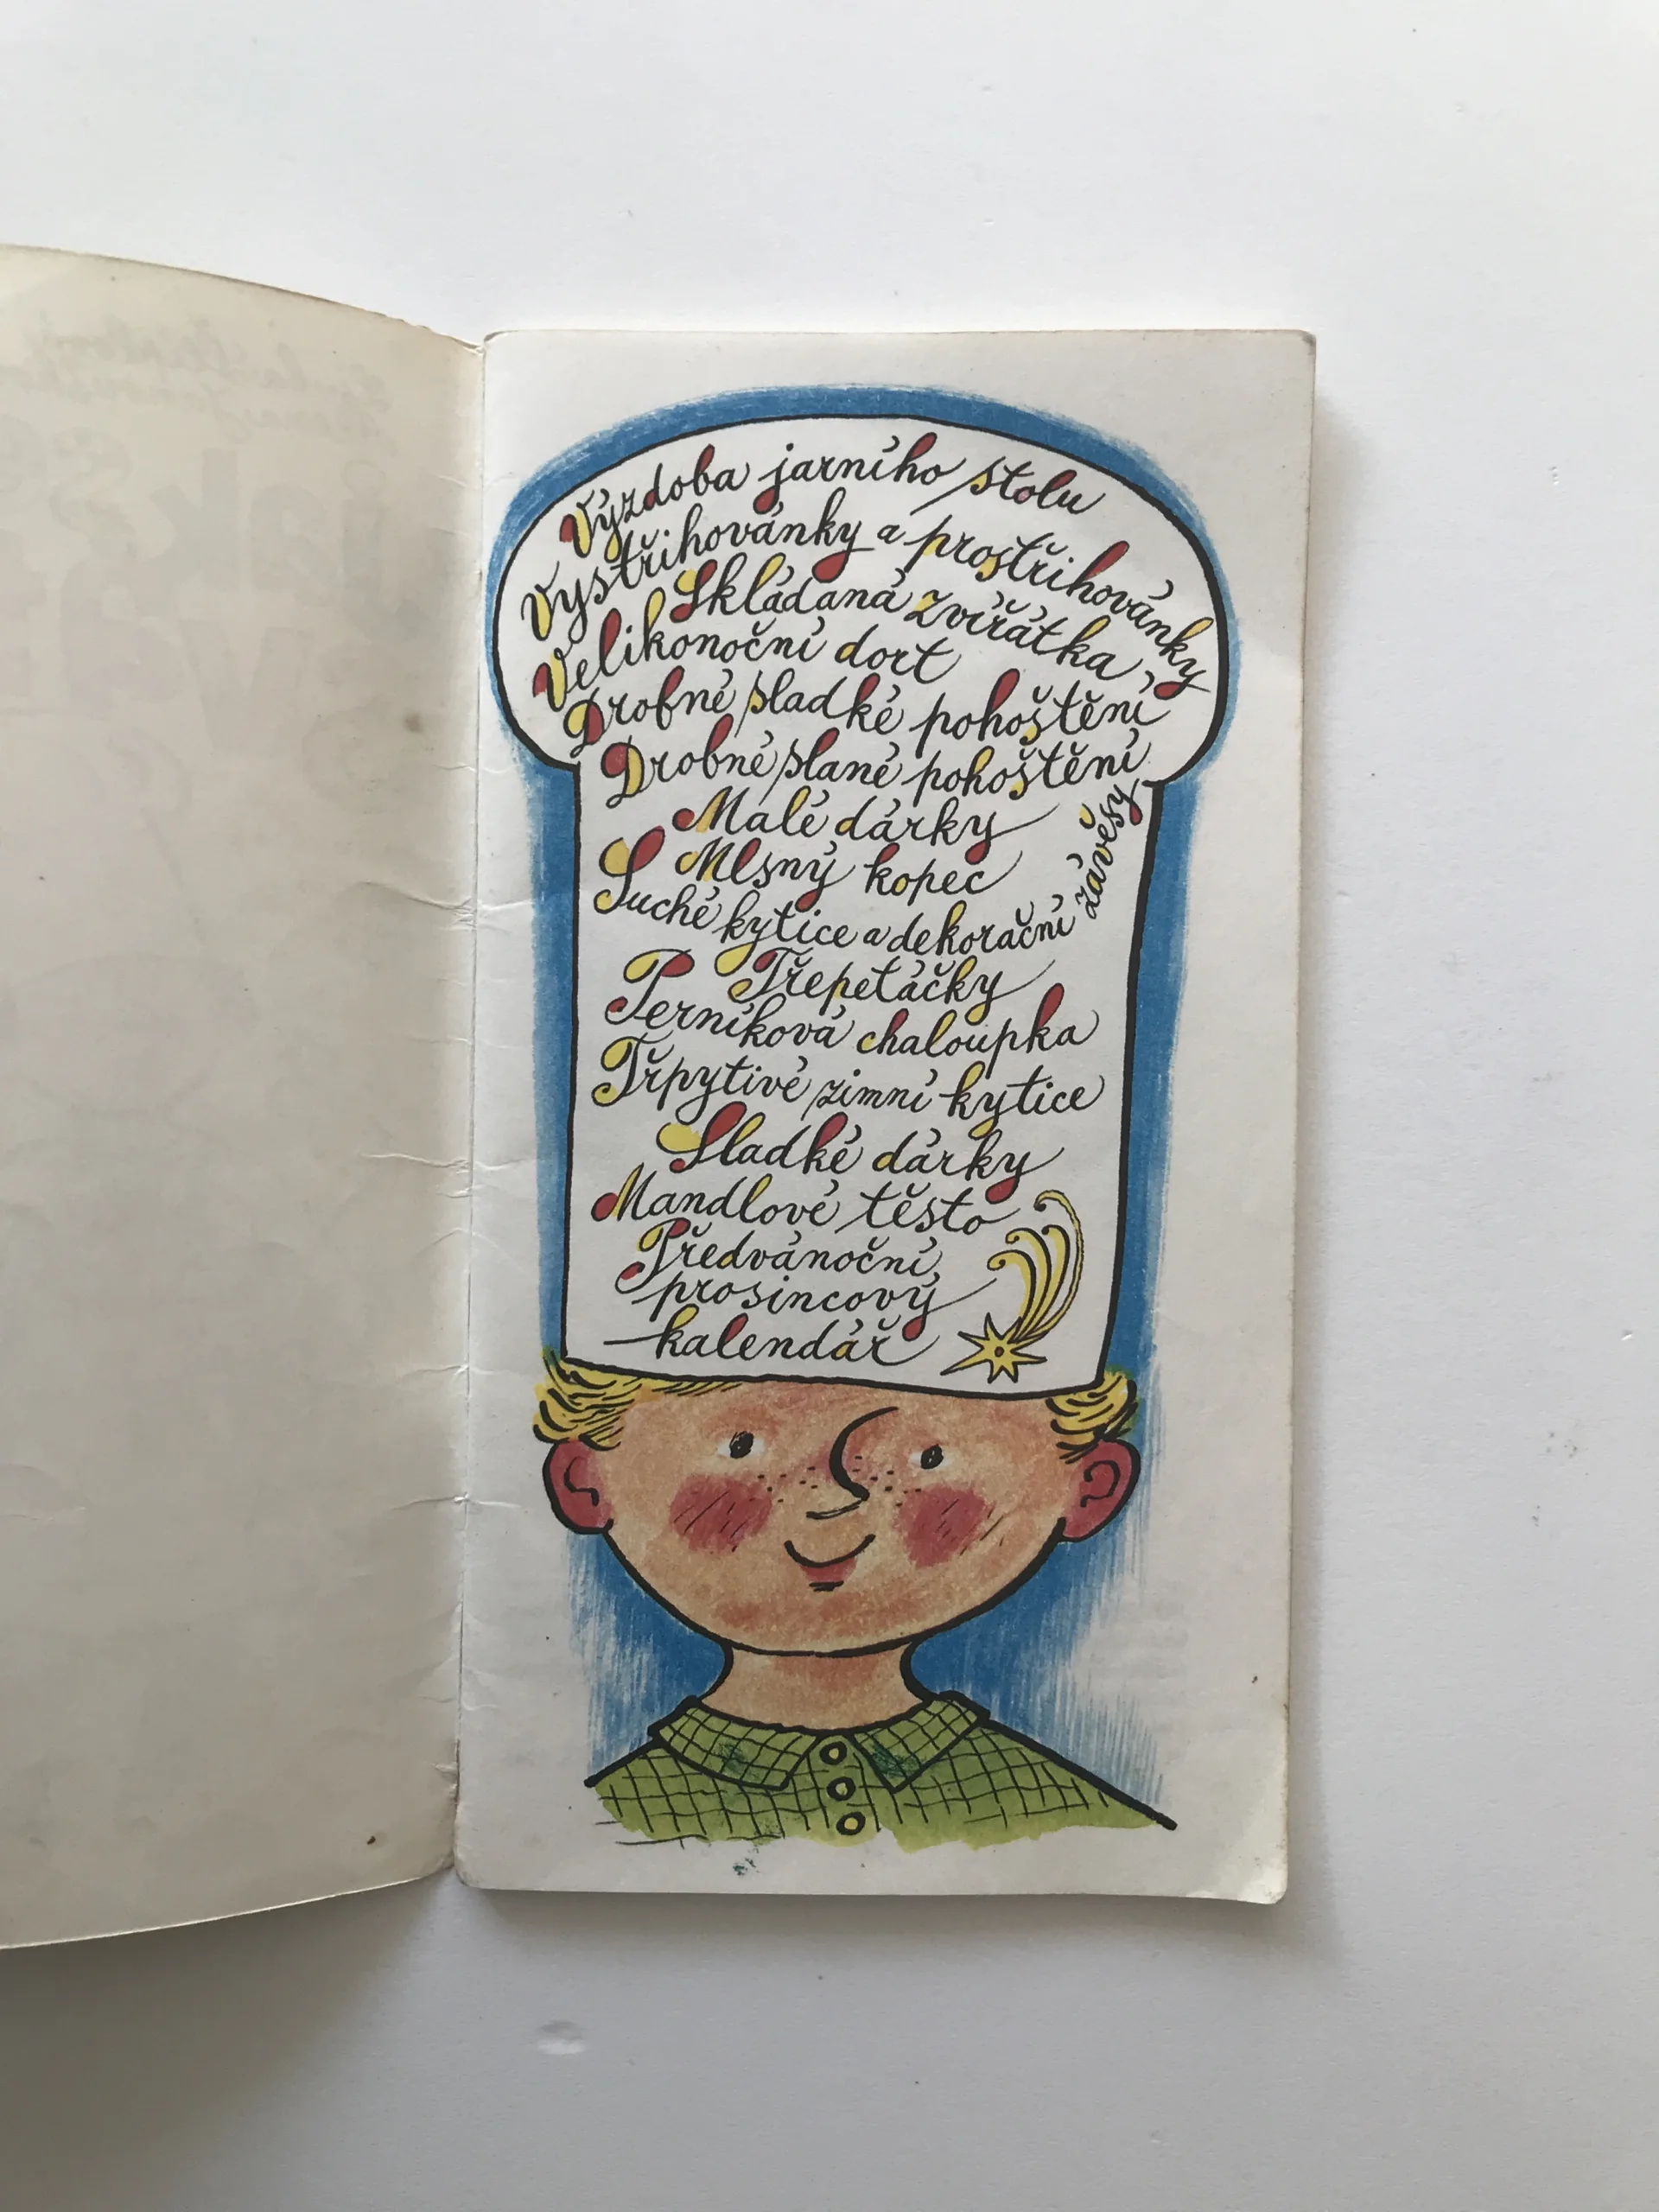 Výzdoba jarního stolu
Vystřihovánky a prostřihovánky
Skládaná zvířátka
Velikonoční dort
Drobné sladké pohoštění
Drobné slané pohoštění
Malé dárky
Mlsný kopec
Suché kytice a dekorační závěsy
Třepetáčky
Perníková chaloupka
Třpytivé zimní kytice
Sladké dárky
Mandlové těsto
Předvánoční
prosincový
kalendář